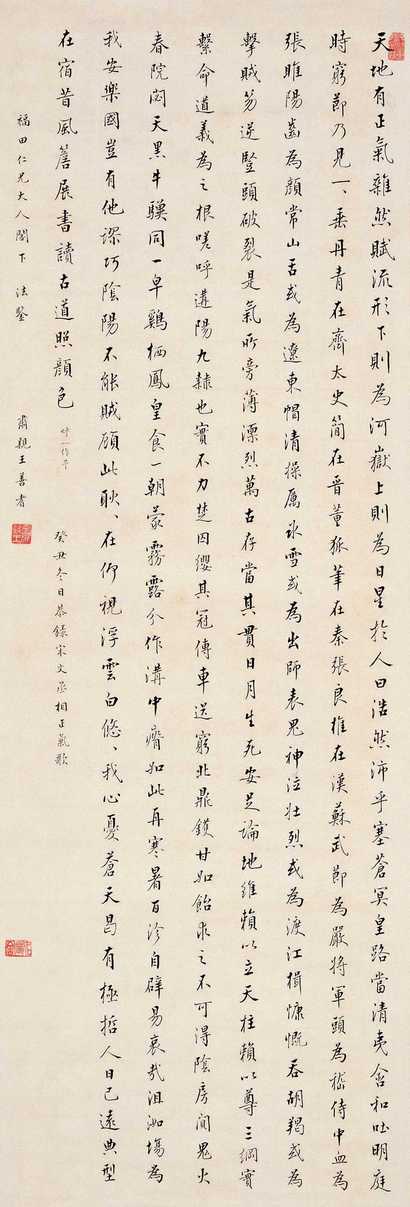 天地有正氣雜然賦流形下則為河嶽上則為日星於人曰浩然沛乎塞蒼冥皇路當清夷含和吐明庭
時窮節乃見一、垂丹青在齊太史簡在晉董狐筆在秦張良椎在漢蘇武節為嚴將軍頭為嵇侍中血為
張睢陽齒為顏常山舌或為遼東帽清操厲冰雪或為出師表鬼神泣壯烈或為渡江楫慷慨吞胡羯或為
擊賊笏逆豎頭破裂是氣所旁薄凜烈萬古存當其貫日月生死安足論地維賴以立天柱賴以尊三綱實
繫命道義為之根嗟呼遘陽九隸也實不力楚囚纓其冠傳車送窮北鼎鑊甘如飴求之不可得陰房闃鬼火
春院閟天黑牛驥同一皁雞棲鳳皇食一朝蒙霧露分作溝中瘠如此再寒暑百沴自辟易哀哉沮洳場為
我安樂國豈有他謬巧陰陽不能賊顧此耿、在仰視浮雲白悠、我心憂蒼天曷有極哲人日已遠典型
在宿昔風簷展書讀古道照顏色
癸丑冬日恭錄宋文丞相正氣歌
福田仁兄大人閣下 法鑒
肅親王善耆